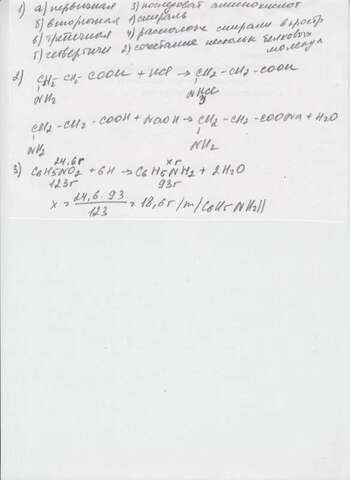 1) а) первичная 3) последоват аминокислот
б) вторичная 1) спираль
в) третичная 4) расположе спирали в простр
г) четвертичн 2) сочетание нескольк белковых
молекул
2) CH2 CH2-COOH + HCl → CH2-CH2-COOH
NH2 NH3Cl
CH2-CH2-COOH + NaOH → CH2-CH2-COONa + H2O
NH2 NH2
24,6г xг
3) C6H5NO2 + 6H → C6H5NH2 + 2H2O
123г 93г
x = 24,6·93 / 123 = 18,6г /m/C6H5NH2//